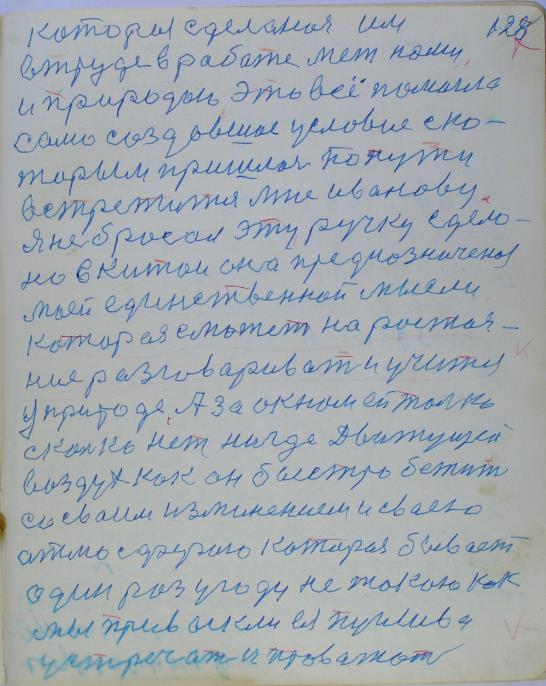 128
которая сделаная им
втруде вработе меж нами
и природою это всё помогла
само создавшае условие ско-
торым пришлая попути
встретится мне иванову
я не бросал эту ручку сдела-
но вкитаи она предназначеная
моей единственной мысли
которая сможет на растоя-
ние разговариват и учится
уприроде. А за окном ей только
сколко нет нигде Движущей
воздух как он быстро бежит
сосваим изминением и сваею
атмосферою которая бывает
один раз угоду не такою как
мы привыкли ея пугливо
устречат и проважат